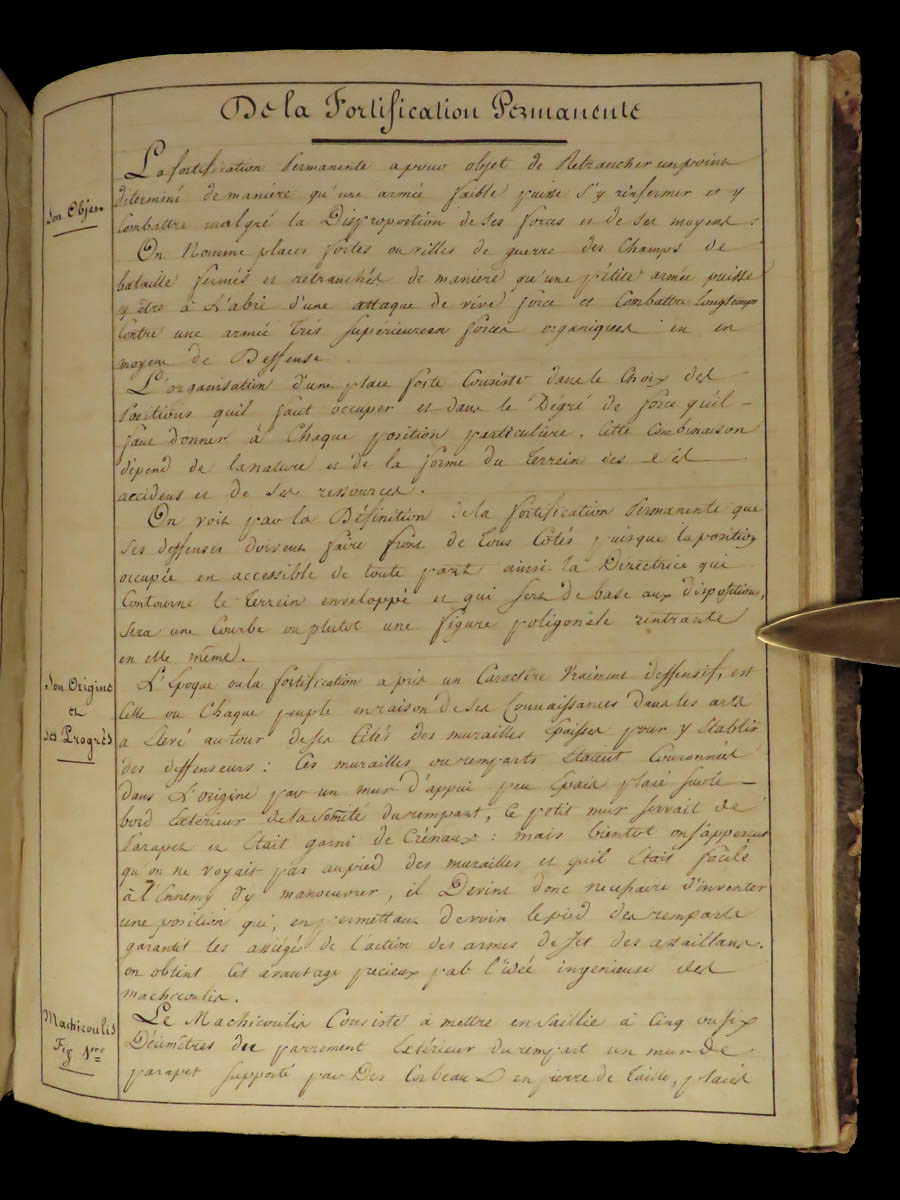 De la Fortification Permanente
Son Objet
La fortification Permanente a pour objet de Retrancher un point
déterminé de maniere qu'une armée faible puisse s'y renfermer et y
Combattre malgré la Disproportion de ses forces et de ses moyens.
On Nomme places fortes ou villes de guerre des Champs de
bataille fermés et retranchés de maniere qu'une pétite armée puisse
y être à L'abri d'une attaque de vive force et Combattre longtemps
Contre une armée très superieure en forces organiques et en
moyens de Deffense.
L'organisation d'une place forte Consiste dans le Choix des
Positions qu'il faut occuper et dans le Dégré de force qu'il
faut donner à Chaque position particuliere. Cette Combinaison
dépend de la nature et de la forme du terrein des
accidens et de ses ressources.
On voit par la Définition de la fortification Permanente que
ses deffenses doivent faire front de tous Côtés puisque la position
occupée en accessible de toute part ainsi la Directrice qui
Contourne le terrein enveloppé et qui sert de base aux dispositions,
sera une Courbe ou plutot une figure poligonale rentrante
en elle même.
Son Origine
et
ses Progrès
L'Epoque ou la fortification a pris un Caractère Vraiment deffensif, est
Celle ou Chaque peuple en raison de ses Connaissances dans les arts
a Elevé autour de ses Cités des murailles Epaisses pour y Etablir
des deffenseurs: Ces murailles ou remparts Etaient Couronnées
dans L'origine par un mur d'appui peu Epais placé sur le
bord Exterieur de la Somité du rempart, Ce petit mur servait de
Parapet et Etait garni de Crénaux: mais bientot on s'apperçut
qu'on ne voyait pas au pied des murailles et qu'il Etait facile
à l'Ennemy d'y manoeuvrer, il Devint donc necessaire d'inventer
une position qui, en permettant de voir le pied des remparts
garantit les assiégés de l'action des armes de Jet des assaillans.
on obtint Cet avantage precieux par l'idée ingenieuse des
machicoulis.
Machicoulis
Fig 1ere
Le Machicoulis Consiste à mettre en Saillie à Cinq ou six
Décimêtres du parrement Extérieur du rempart un mur de
parapet supporté par Des Corbeaux en pierre de Taille, placés